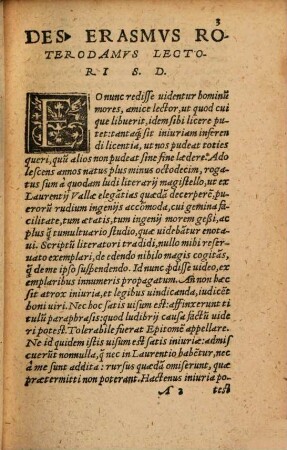 3
DES. ERASMVS RO-
TERODAMVS LECTO-
RI S. D.
EO nunc redisse uidentur hominũ
mores, amice lector, ut quod cui
que libuerit, idem sibi licere pu-
tet: tantaq́; sit iniuriam inferen
di licentia, ut nos pudeat toties
queri, quũ alios non pudeat sine fine lædere. Ado
lescens annos natus plus minus octodecim, rogat
tus sum à quodam ludi literarij magistello, ut ex
Laurentij Vallæ elegãtijs quædã decerperẽ, pu-
erorũ rudium ingenijs accõmoda, cui gemina fa-
cilitate, tum ætatis, tum ingenij morem gessi, ac
plus q̃ tumultuario studio, quæ uidebãtur enota
ui. Scriptũ literatori tradidi, nullo mihi reser-
uato exemplari, de edendo nihilo magis cogitãs,
q̃ de me ipso suspendendo. Id nunc ap̃d isse uideo, ex
emplaribus innumeris propagatum. An non hæc
sit atrox iniuria, et legibus uindicanda, iudicẽt
boni uiri. Nec hoc satis uisum est: affinxerunt ti
tulũ paraphrasis: quod ludibrij causa factũ uide
ri potest. Tolerabile fuerat Epitomẽ appellare.
Ne id quidem istis uisum est satis iniuriæ: admis
cuerũt nonnulla, q̃ nec in Laurentio habẽtur, nec
à me sunt addita: rursus quædã omiserunt, quæ
prætermitti non poterant. Hactenus iniuria po-
A 2 test